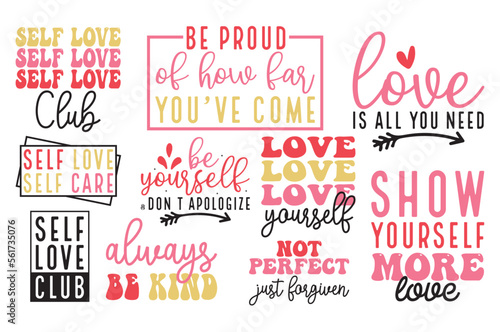 SELF LOVE
SELF LOVE
SELF LOVE
Club
BE PROUD
of how far
YOU'VE COME
love
IS ALL YOU NEED
SELF LOVE
SELF CARE
be
yourself
DON T APOLOGIZE
LOVE
LOVE
LOVE
yourself
SHOW
YOURSELF
MORE
love
SELF
LOVE
CLUB
always
BE KIND
NOT
PERFECT
just forgiven
Adobe Stock | #561735076